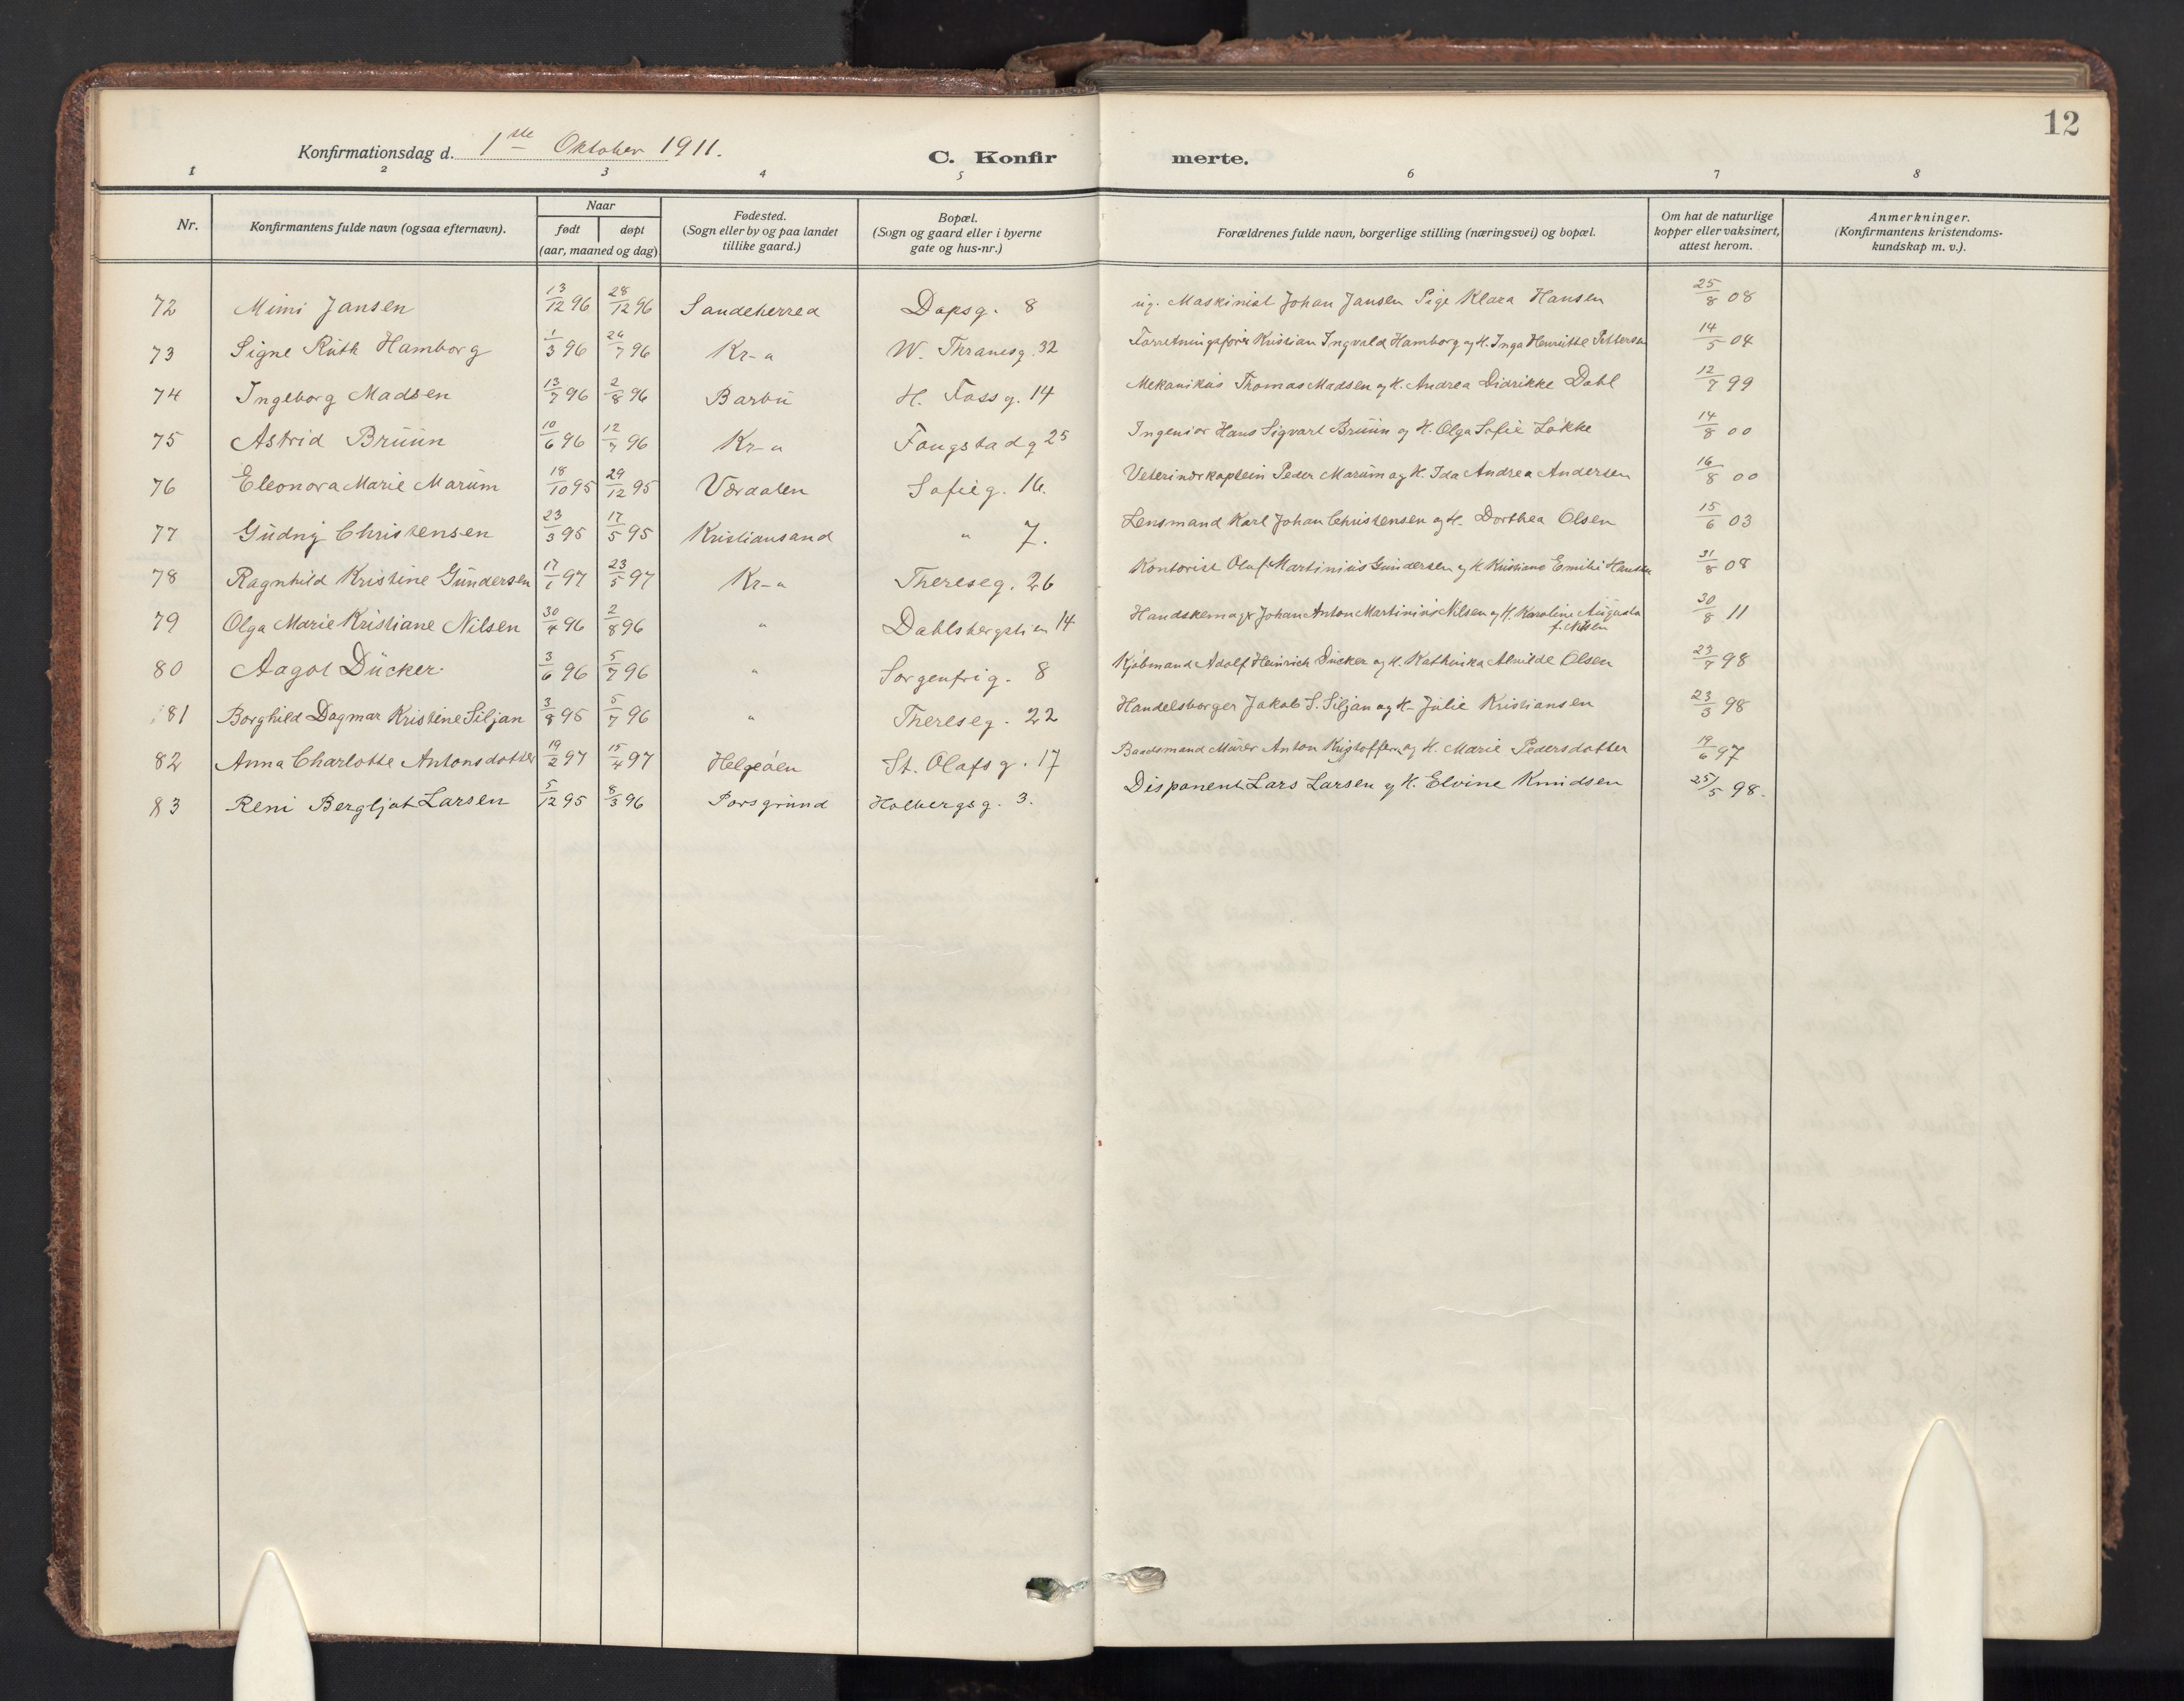 12
Konfirmationsdag d. 1ste Oktober 1911.
C. Konfirmerte.
1 2 3 4 5 6 7 8
Nr.
Konfirmantens fulde navn (ogsaa efternavn).
Naar
født
døpt
(aar, maaned og dag)
Fødested.
(Sogn eller by og paa landet
tillike gaard.)
Bopæl.
(Sogn og gaard eller i byerne
gate og hus-nr.)
Forældrenes fulde navn, borgerlige stilling (næringsvei) og bopæl.
Om hat de naturlige
kopper eller vaksinert,
attest herom.
Anmerkninger.
(Konfirmantens kristendoms-
kundskap m. v.).
72 Mimi Jansen 13/12 96 28/12 96 Sandeherred Dopsg. 8 ug. Maskinist Johan Jansen Pige Klara Hansen 25/8 08
73 Signe Ruth Hamborg 1/3 96 26/7 96 Kr-a W. Thranesg. 32 Forretningsfører Kristian Ingvald Hamborg og H. Inga Henriette Pettersen 14/5 04
74 Ingeborg Madsen 13/7 96 2/8 96 Barbu H. Fossg. 14 Mekanikus Thomas Madsen og H. Andrea Didrikke Dahl 12/7 99
75 Astrid Bruun 10/6 96 12/7 96 Kr-a Fougstadg 25 Ingeniør Hans Sigvart Bruun og H. Olga Sofie Løkke 14/8 00
76 Eleonora Marie Marum 18/10 95 29/12 95 Værdalen Sofieg. 16. Veterinærkaptein Peder Marum og H. Ida Andrea Andersen 16/8 00
77 Gudny Christensen 23/3 95 17/5 95 Kristiansand " 7. Lensmand Karl Johan Christensen og H. Dorthea Olsen 15/6 03
78 Ragnhild Kristine Gundersen 17/1 97 23/5 97 Kr-a Thereseg. 26 Kontorist Olaf Martinius Gundersen og H Kristiane Emilie Hansen 31/8 08
79 Olga Marie Kristiane Nilsen 30/4 96 2/8 96 " Dahlsbergstien 14 Handskemager Johan Anton Martinius Nilsen og H. Karoline Augusta 30/8 11
f. Nilsen
80 Aagot Dücker 3/6 96 5/7 96 " Sorgenfrig. 8 Kjøbmand Adolf Heinrich Dücker og H. Kathinka Alvilde Olsen 23/7 98
81 Borghild Dagmar Kristine Siljan 3/8 95 5/7 96 " Thereseg. 22 Handelsborger Jakob S. Siljan og H. Julie Kristiansen 23/3 98
82 Anna Charlotte Antonsdotter 19/2 97 15/4 97 Helgeøen St. Olafsg. 17 Baadsmand Murer Anton Kristoffersen og H. Marie Pedersdotter 19/6 97
83 Reni Bergljot Larsen 5/12 95 8/3 96 Porsgrund Holbergsg. 3. Disponent Lars Larsen og H. Elvine Knudsen 25/5 98.